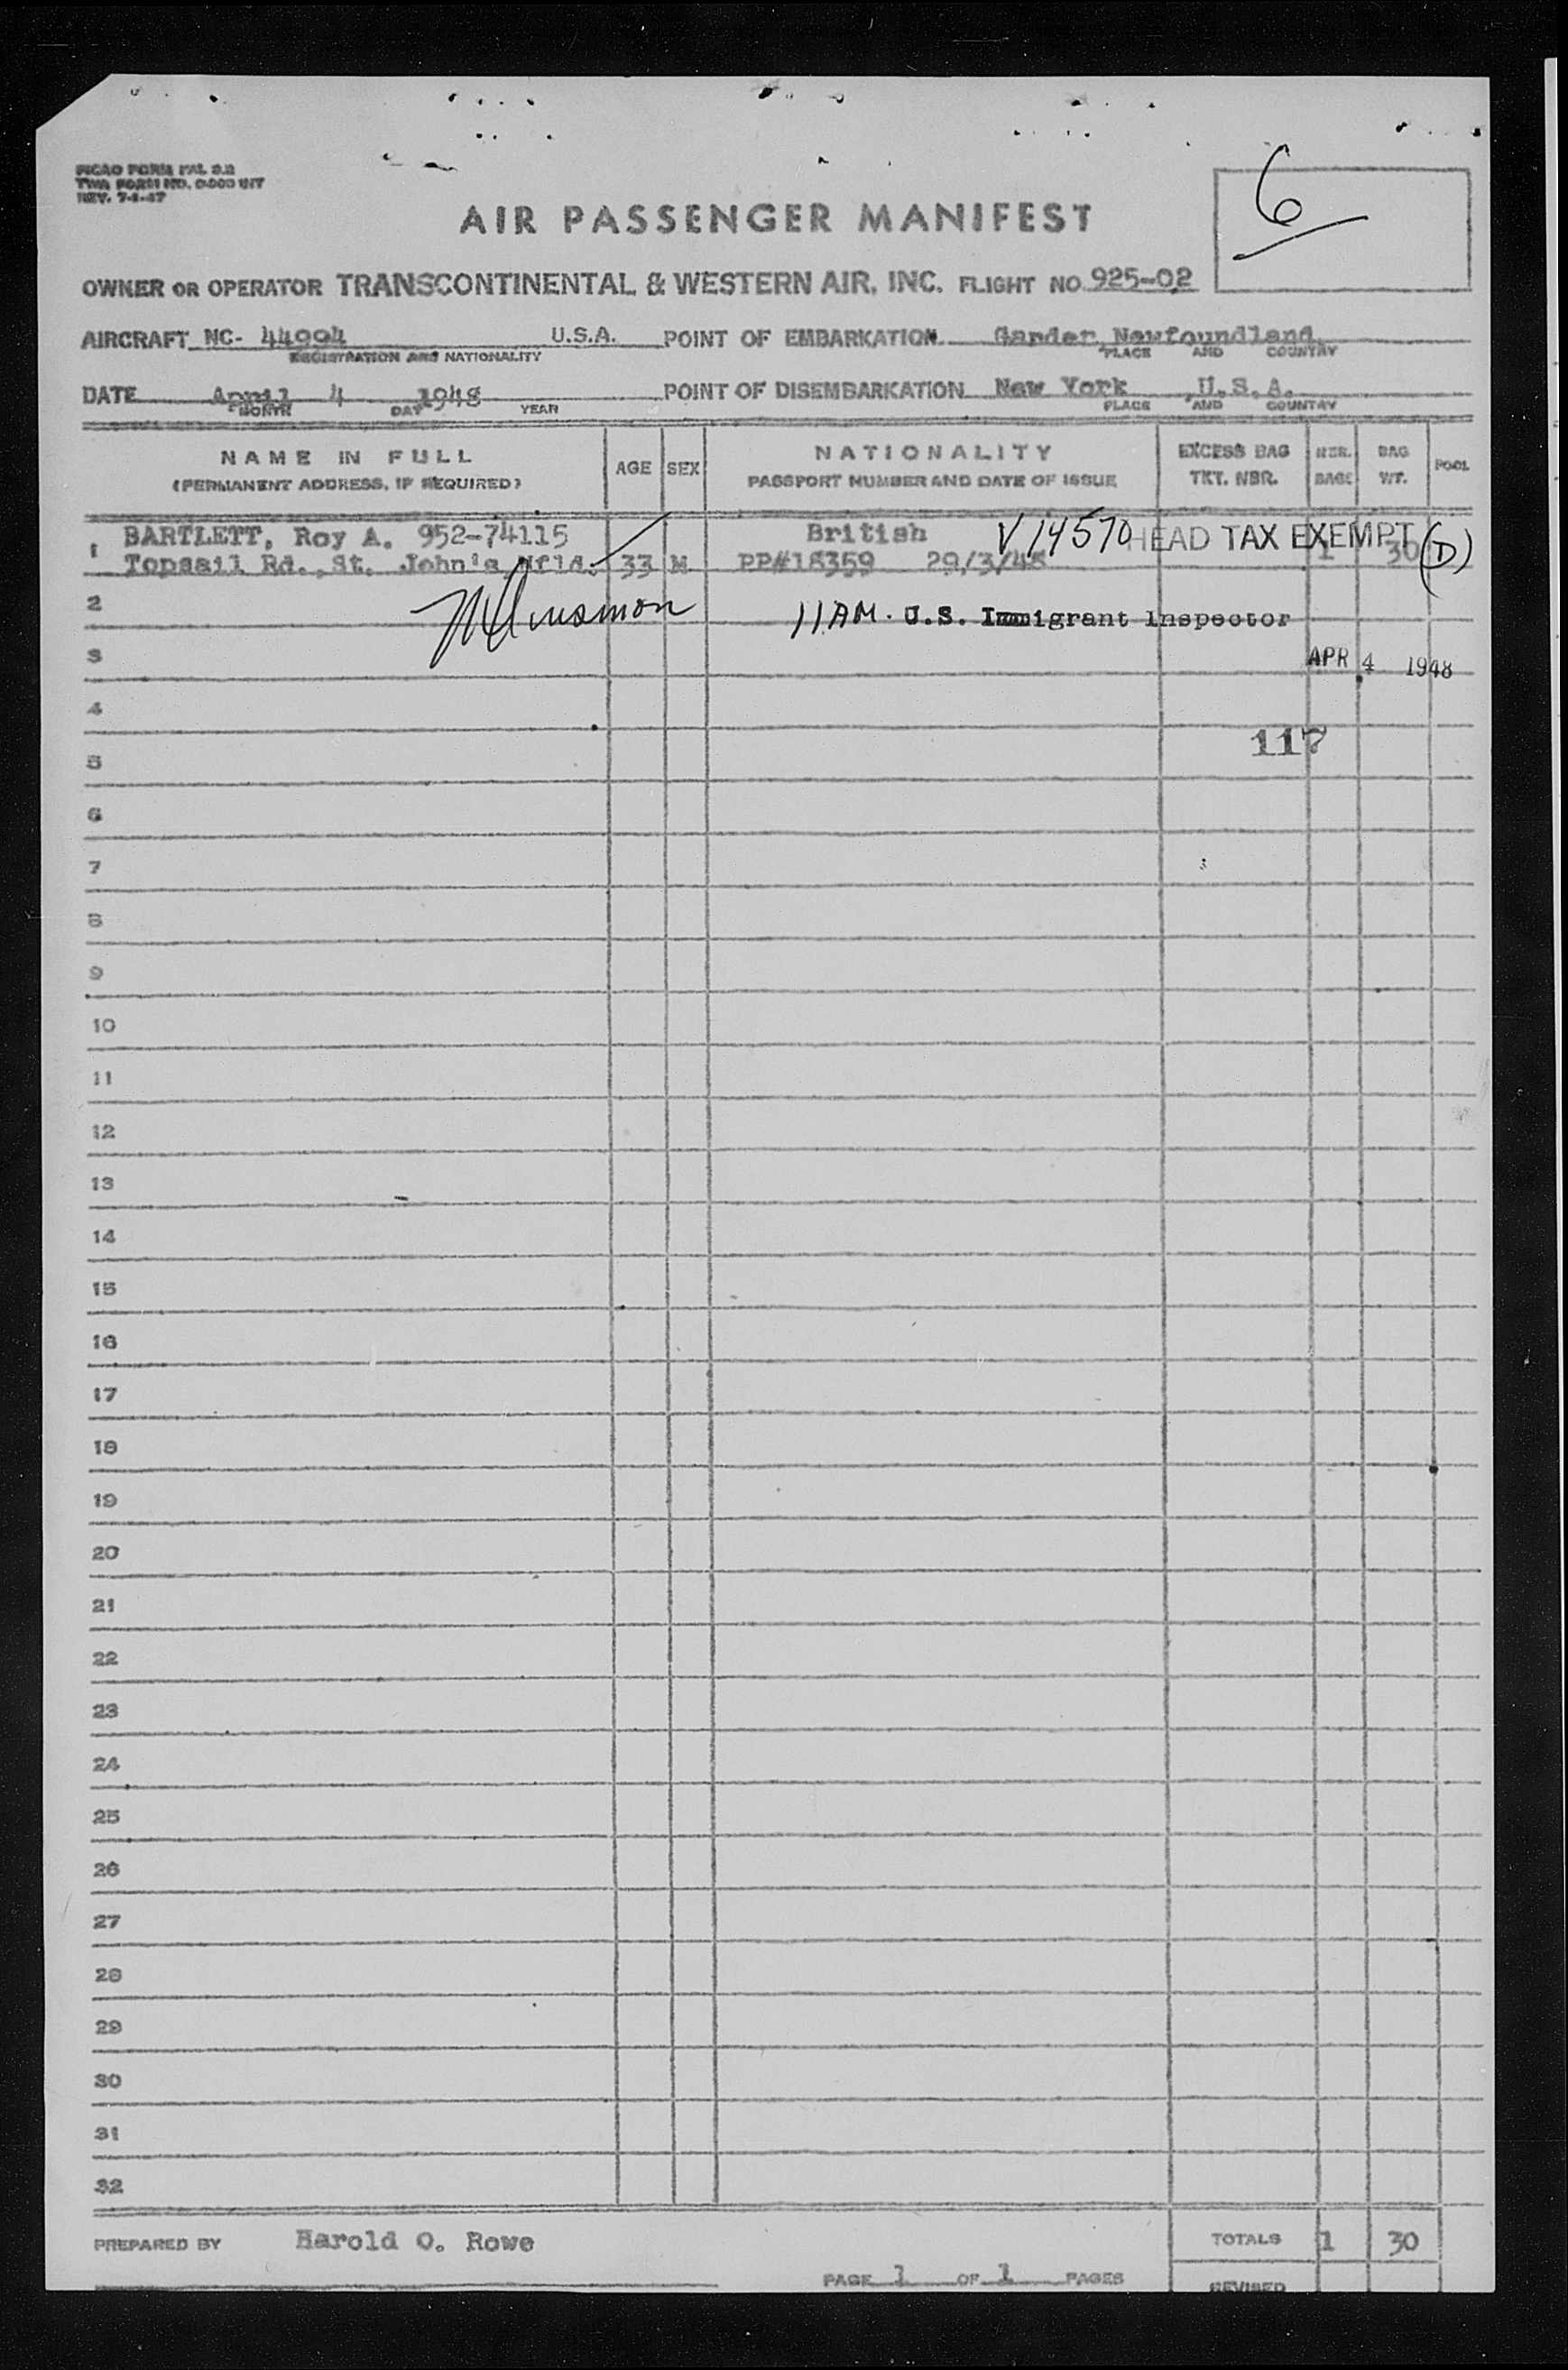 PICAO FORM FAL 2.2
TWA FORM NO. INT
REV. 7-1-47
6
AIR PASSENGER MANIFEST
OWNER OR OPERATOR TRANSCONTINENTAL & WESTERN AIR, INC. FLIGHT NO 925-02
AIRCRAFT NC- 44994 U.S.A. POINT OF EMBARKATION Gander, Newfoundland
REGISTRATION AND NATIONALITY PLACE AND COUNTRY
DATE April 4 1948 POINT OF DISEMBARKATION New York U.S.A.
MONTH DAY YEAR PLACE AND COUNTRY
NAME IN FULL AGE SEX NATIONALITY EXCESS BAG NBR. BAG POOL
(PERMANENT ADDRESS, IF REQUIRED) PASSPORT NUMBER AND DATE OF ISSUE TKT. NBR. BAGS WT.
1 BARTLETT, Roy A. 952-74115 British V 14570 HEAD TAX EXEMPT (D)
Topsail Rd., St. John's Nfld. 33 M PP#18359 29/3/48 1 30
2 11 AM. U.S. Immigrant Inspector
3 APR 4 1948
4
5 117
6
7
8
9
10
11
12
13
14
15
16
17
18
19
20
21
22
23
24
25
26
27
28
29
30
31
32
PREPARED BY Harold O. Rowe TOTALS 1 30
PAGE 1 OF 1 PAGES REVISED